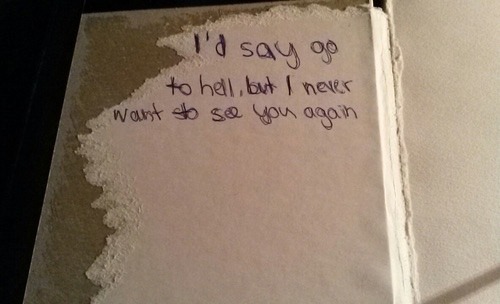 I'd say go
to hell, but I never
want to see you again